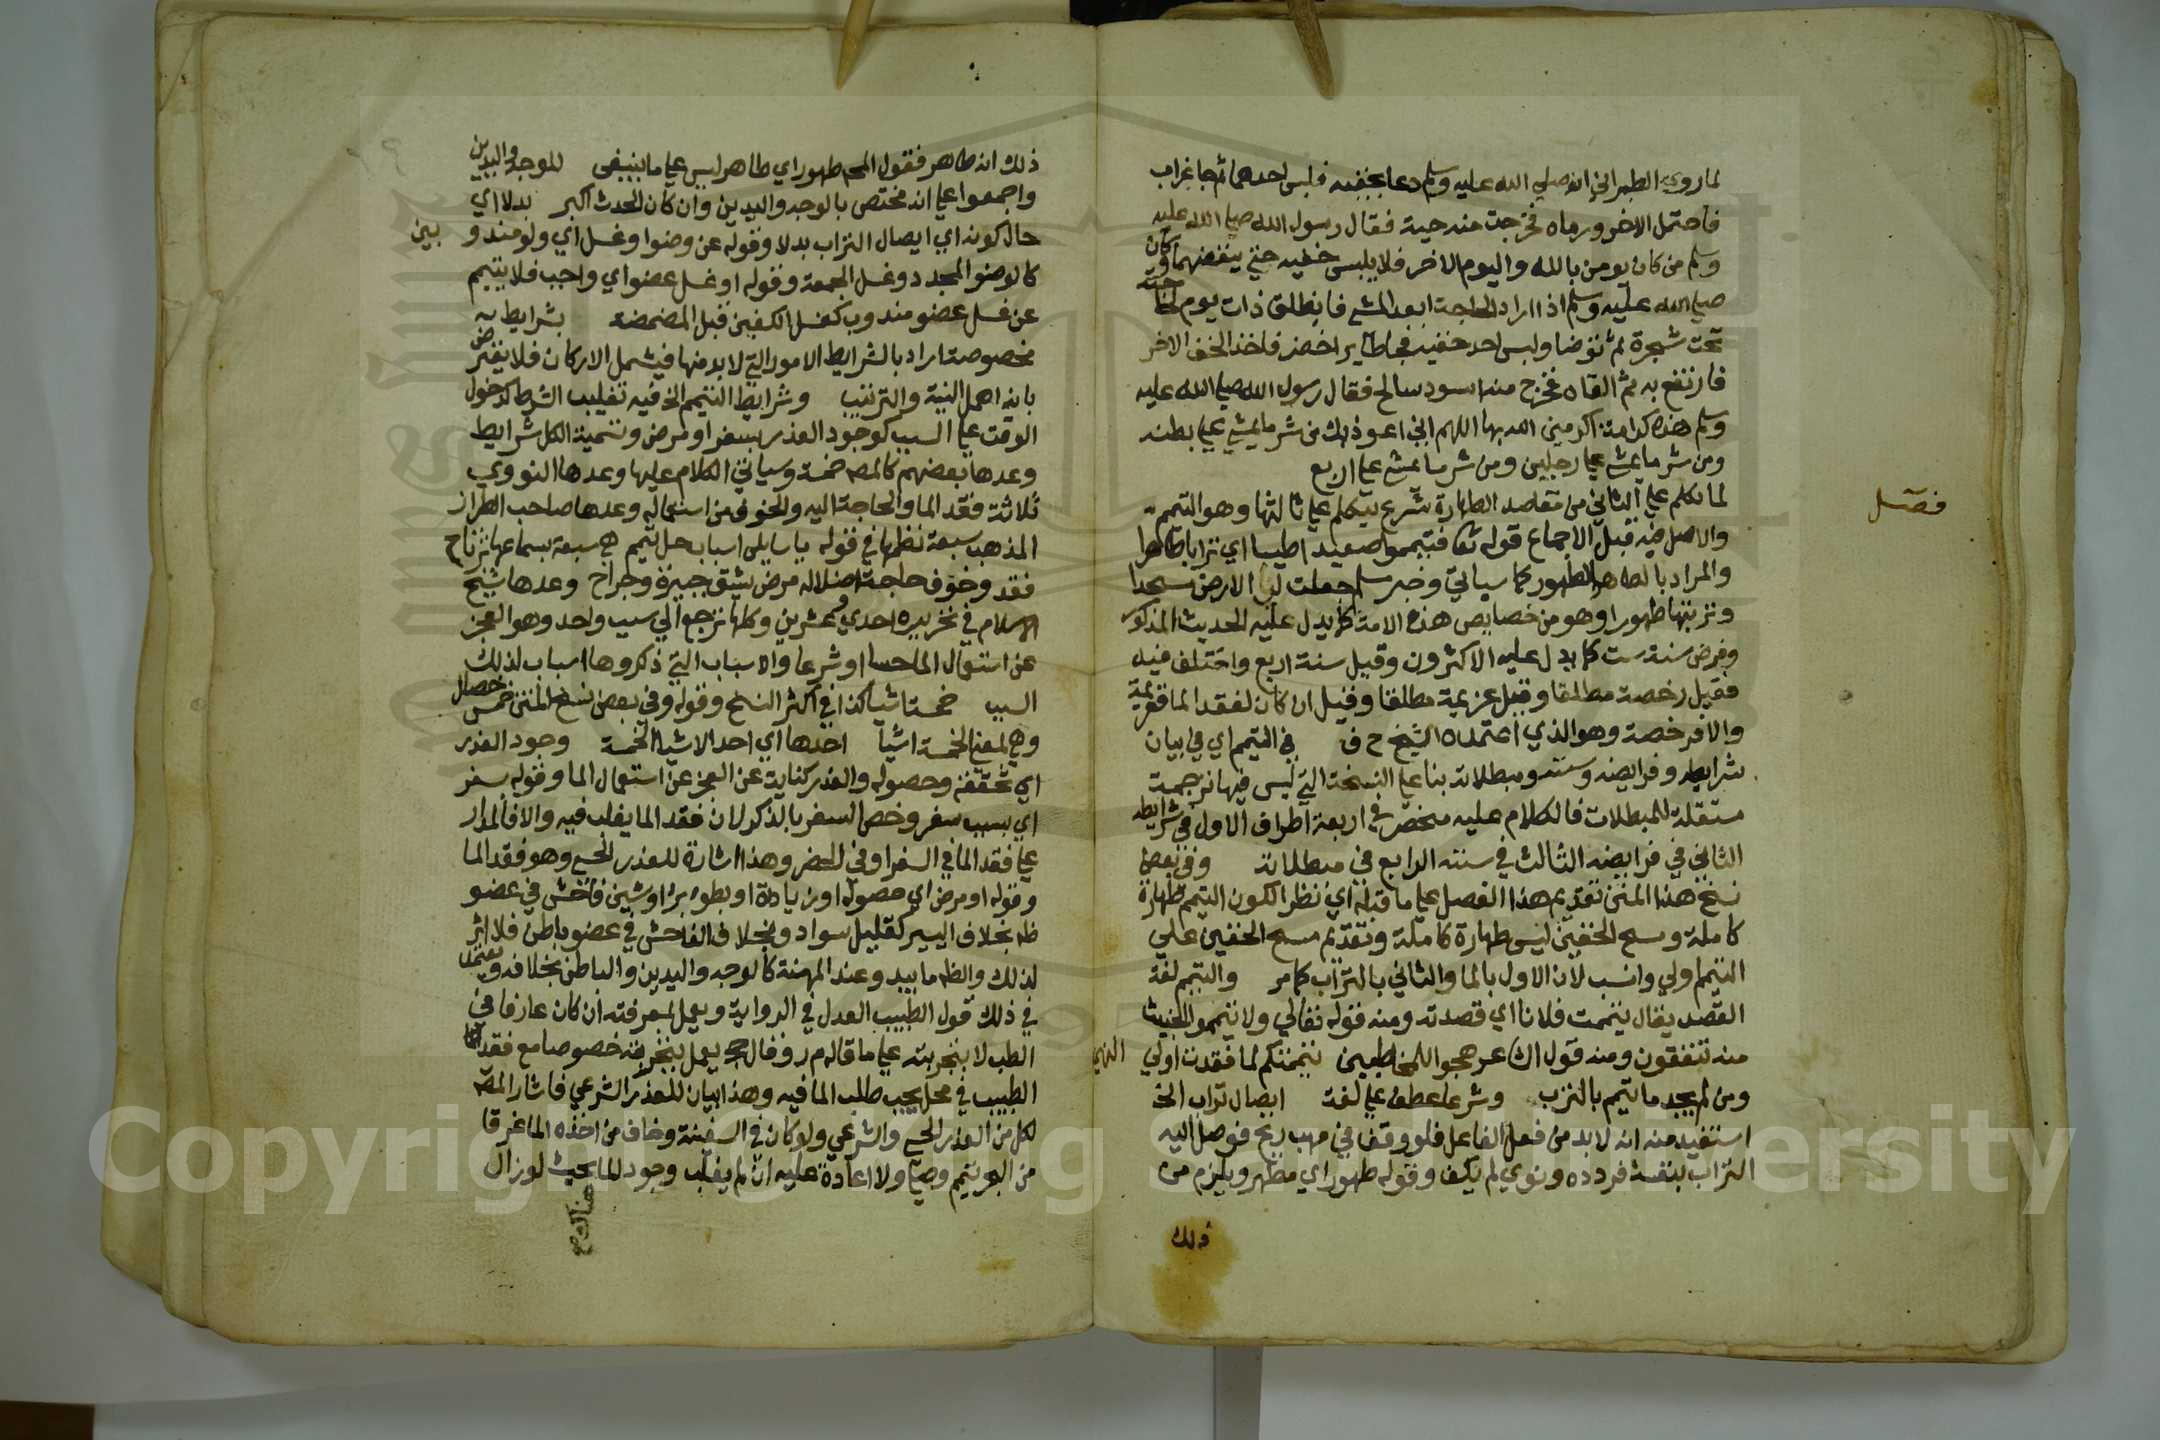 لما روي الطبراني انه صلي الله عليه وسلم دعا بخفيه فلبس احدهما ثم جا غراب
فاحتمل الاخر ورماه فخرجت منه حية فقال رسول الله صلي الله عليه
وسلم من كان يومن بالله واليوم الاخر فلا يلبس خفيه حتي ينفضهما وكان
صلي الله عليه وسلم اذا اراد الحاجة ابعد المشي فانطلق ذات يوم لحاجته
تحت شجرة ثم توضا ولبس احد خفيه فجا طاير اخضر فاخذ الخف الاخر
فارتفع به ثم القاه فخرج منه اسود سالح فقال رسول الله صلي الله عليه
وسلم هذه كرامة اكرمني الله بها اللهم اني اعوذ بك من شر ما يمشي علي بطنه
ومن شر ما يمشي علي رجلين ومن شر ما يمشي علي اربع
فصل
لما تكلم علي الثاني من مقاصد الطهارة شرع يتكلم علي ثالثها وهو التيمم
والاصل فيه قبل الاجماع قوله تعا فتيمموا صعيدا طيبا اي ترابا طاهرا
والمراد بالطاهر الطهور كما سياتي وخبر مسلم جعلت لنا الارض مسجدا
وتربتها طهورا وهو من خصايص هذه الامة كما يدل عليه الحديث المذكور
وفرض سنة ست كما يدل عليه الاكثرون وقيل سنة اربع واختلف فيه
فقيل رخصة مطلقا وقيل عزيمة مطلقا وقيل ان كان لفقد الما فعزيمة
والا فرخصة وهو الذي اعتمده الشيخ ح ف في التيمم اي في بيان
شرايطه وفرايضه وسننه ومبطلاته بنا علي النسخة التي ليس فيها ترجمة
مستقلة للمبطلات فالكلام عليه منحصر في اربعة اطراف الاول في شرايطه
الثاني في فرايضه الثالث في سننه الرابع في مبطلاته وفي بعض
نسخ هذا المتن تقديم هذا الفصل علي ما قبله اي نظرا لكون التيمم طهارة
كاملة ومسح الخفين ليس طهارة كاملة وتقديم مسح الخفين علي
التيمم اولي وانسب لان الاول بالما والثاني بالتراب كما مر والتيمم لغة
القصد يقال تيممت فلانا اي قصدته ومنه قوله تعالي ولا تيمموا الخبيث
منه تنفقون ومنه قول الشاعر هجوا للمخاطبين تيممتكم لما فقدت اولي النهي
ومن لم يجد ما تيمم بالترب وشرعا عطف علي لغة ايصال تراب الخ
استفيد منه انه لا بد من فعل الفاعل فلو وقف في مهب ريح فوصل اليه
التراب بنفسه فردده ونوي لم يكف وقوله طهور اي مطهر ويلزم من
ذلك
ذلك انه طاهر فقول المحه طهور اي طاهر ليس علي ما ينبغي للوجه واليدين
واجمعوا علي انه مختص بالوجه واليدين وان كان الحدث اكبر بدلا اي
حال كونه اي ايصال التراب بدلا وقوله عن وضوا وغسل اي ولو مندوبين
كالوضو المجدد وغسل الجمعة وقوله او غسل عضو اي واجب فلا يتيمم
عن غسل عضو مندوب كغسل الكفين قبل المضمضة بشرايط
مخصوصة اراد بالشرايط الامور التي لا بد منها فيشمل الاركان فلا يعترض
بانه اهمل النية والترتيب وشرايط التيمم الخ فيه تغليب الشرط كدخول
الوقت علي السبب كوجود العذر بسفر او مرض وتسمية الكل شرايط
وعدها بعضهم كالمصه خمسة وسياتي الكلام عليها وعدها النووي
ثلاثة فقد الما والحاجة اليه والخوف من استعماله وعدها صاحب الطراز
المذهب سبعة نظمها في قوله يا سايلي اسباب حل تيمم هي سبعة بسماعها ترتاح
فقد وخوف حاجة اضلاله مرض يشق جبيرة وجراح وعدها شيخ
الاسلام في تحريره احدي وعشرين وكلها ترجع الي سبب واحد وهو العجز
عن استعمال الما حسا او شرعا والاسباب التي ذكروها اسباب لذلك
السبب خمسة اشيا كذا في اكثر النسخ وقوله وفي بعض نسخ المتن خمس خصال
وهي بمعني الخمسة اشيا احدها اي احد الاشيا الخمسة وجود العذر
اي تحققه وحصوله والعذر كناية عن العجز عن استعمال الما وقوله بسفر
اي بسبب سفر وخص السفر بالذكر لان فقد الما يغلب فيه والا فالمدار
علي فقد الما في السفر او في الحضر وهذا اشارة للعذر الحسي وهو فقد الما
وقوله او مرض اي حصوله او زيادة او بطوء برء او شين فاحش في عضو
ظه بخلاف اليسير كقليل سواد وبخلاف الفاحش في عضو باطن فلا اثر
لذلك والظه ما يبدو عند المهنة كالوجه واليدين والباطن بخلافه ويعتمد
في ذلك قول الطبيب العدل في الرواية ويعمل بمعرفته ان كان عارفا في
الطب لا بتجربته علي ما قاله م ر وقال حج يعمل بتجربته خصوصا مع فقد
الطبيب في محل يجب طلب الما فيه وهذا بيان للعذر الشرعي فاشار المصه
لكل من العذر الحسي والشرعي ولو كان في السفينة وخاف من اخذه الما غرقا
من البحر تيمم وصلي ولا اعادة عليه ان لم يغلب وجود الما بحيث لو زال
هناك
Copyright © King Saud University